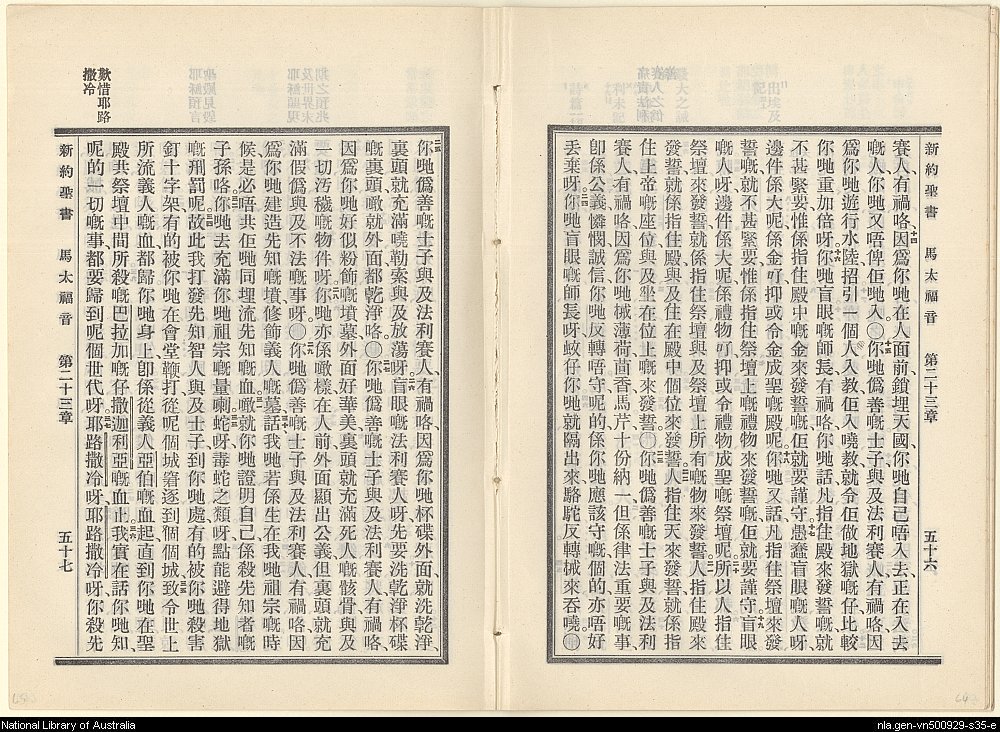 新約聖書 馬太福音 第二十三章 五十六
賽人有禍咯、因爲你哋在人面前鎖埋天國、你哋自己唔入去、正在入去
嘅人、你哋又唔俾佢哋入、〇你哋爲善嘅士子與及法利賽人有禍咯、因
爲你哋遊行水陸、招引一個人入教、佢入嘵教、就令佢做地獄嘅仔、比較
你哋重加倍呀、你哋盲眼嘅師長有禍咯、你哋話、凡指住殿來發誓嘅就
不甚緊要、惟係指住殿中嘅金來發誓嘅、佢就要謹守、愚蠢盲眼嘅人呀、
邊件係大呢、係金好、抑或令金成聖嘅殿呢、你哋又話、凡指住祭壇來發
誓嘅就不甚緊要、惟係指住祭壇上嘅禮物來發誓嘅、佢就要謹守、盲眼
嘅人呀、邊件係大呢、係禮物好、抑或令禮物成聖嘅祭壇呢、所以人指住
祭壇來發誓、就係指住祭壇與及祭壇上所有嘅物來發誓、人指住殿來
發誓、就係指住殿與及住在殿中個位來發誓、人指住天來發誓、就係指
住上帝嘅座位與及坐在位上嘅來發誓、〇你哋爲善嘅士子與及法利
賽人有禍咯、因爲你哋械薄荷茴香馬芹十份納一、但係律法重要嘅事、
卽係公義憐憫誠信、你哋反轉唔守、呢的係你哋應該守嘅、個的亦唔好
丢棄呀、你哋盲眼嘅師長呀、蚊仔你哋就隔出來、駱駝反轉械來吞嘵、〇
歎惜耶路
撒冷
你哋爲善嘅士子與及法利賽人有禍咯、因爲你哋杯碟外面就洗乾淨、
裏頭就充滿嘵勒索與及放蕩呀、盲眼嘅法利賽人呀、先要洗乾淨杯碟
嘅裏頭、噉就外面都乾淨咯、〇你哋爲善嘅士子與及法利賽人有禍咯、
因爲你哋好似粉飾嘅墳墓、外面好華美、裏頭就充滿死人嘅骸骨與及
一切汚穢嘅物件呀、你哋亦係噉樣、在人前外面顯出公義、但裏頭就充
滿假僞與及不法嘅事呀、〇你哋爲善嘅士子與及法利賽人有禍咯、因
爲你哋建造先知嘅墳、修飾義人嘅墓、話我哋若係生在我哋祖宗嘅時
候、是必唔共佢哋同埋流先知嘅血、噉就你哋證明自己係殺先知者嘅
子孫咯、你哋去充滿你哋祖宗嘅量喇、蛇呀、毒蛇之類呀、點能避得地獄
嘅刑罰呢、故此我打發先知智人與及士子到你哋處、有的被你哋殺害
釘十字架、有的被你哋在會堂鞭打、從呢個城窘逐到個個城、致令世上
所流義人嘅血、都歸你哋身上、卽係從義人亞伯嘅血起、直到你哋在聖
殿共祭壇中間所殺嘅巴拉加嘅仔撒迦利亞嘅血止、我實在話你哋知、
呢的一切嘅事、都要歸到呢個世代呀、耶路撒冷呀、耶路撒冷呀、你殺先
新約聖書 馬太福音 第二十三章 五十七
National Library of Australia
nla.gen-vn500929-s35-e